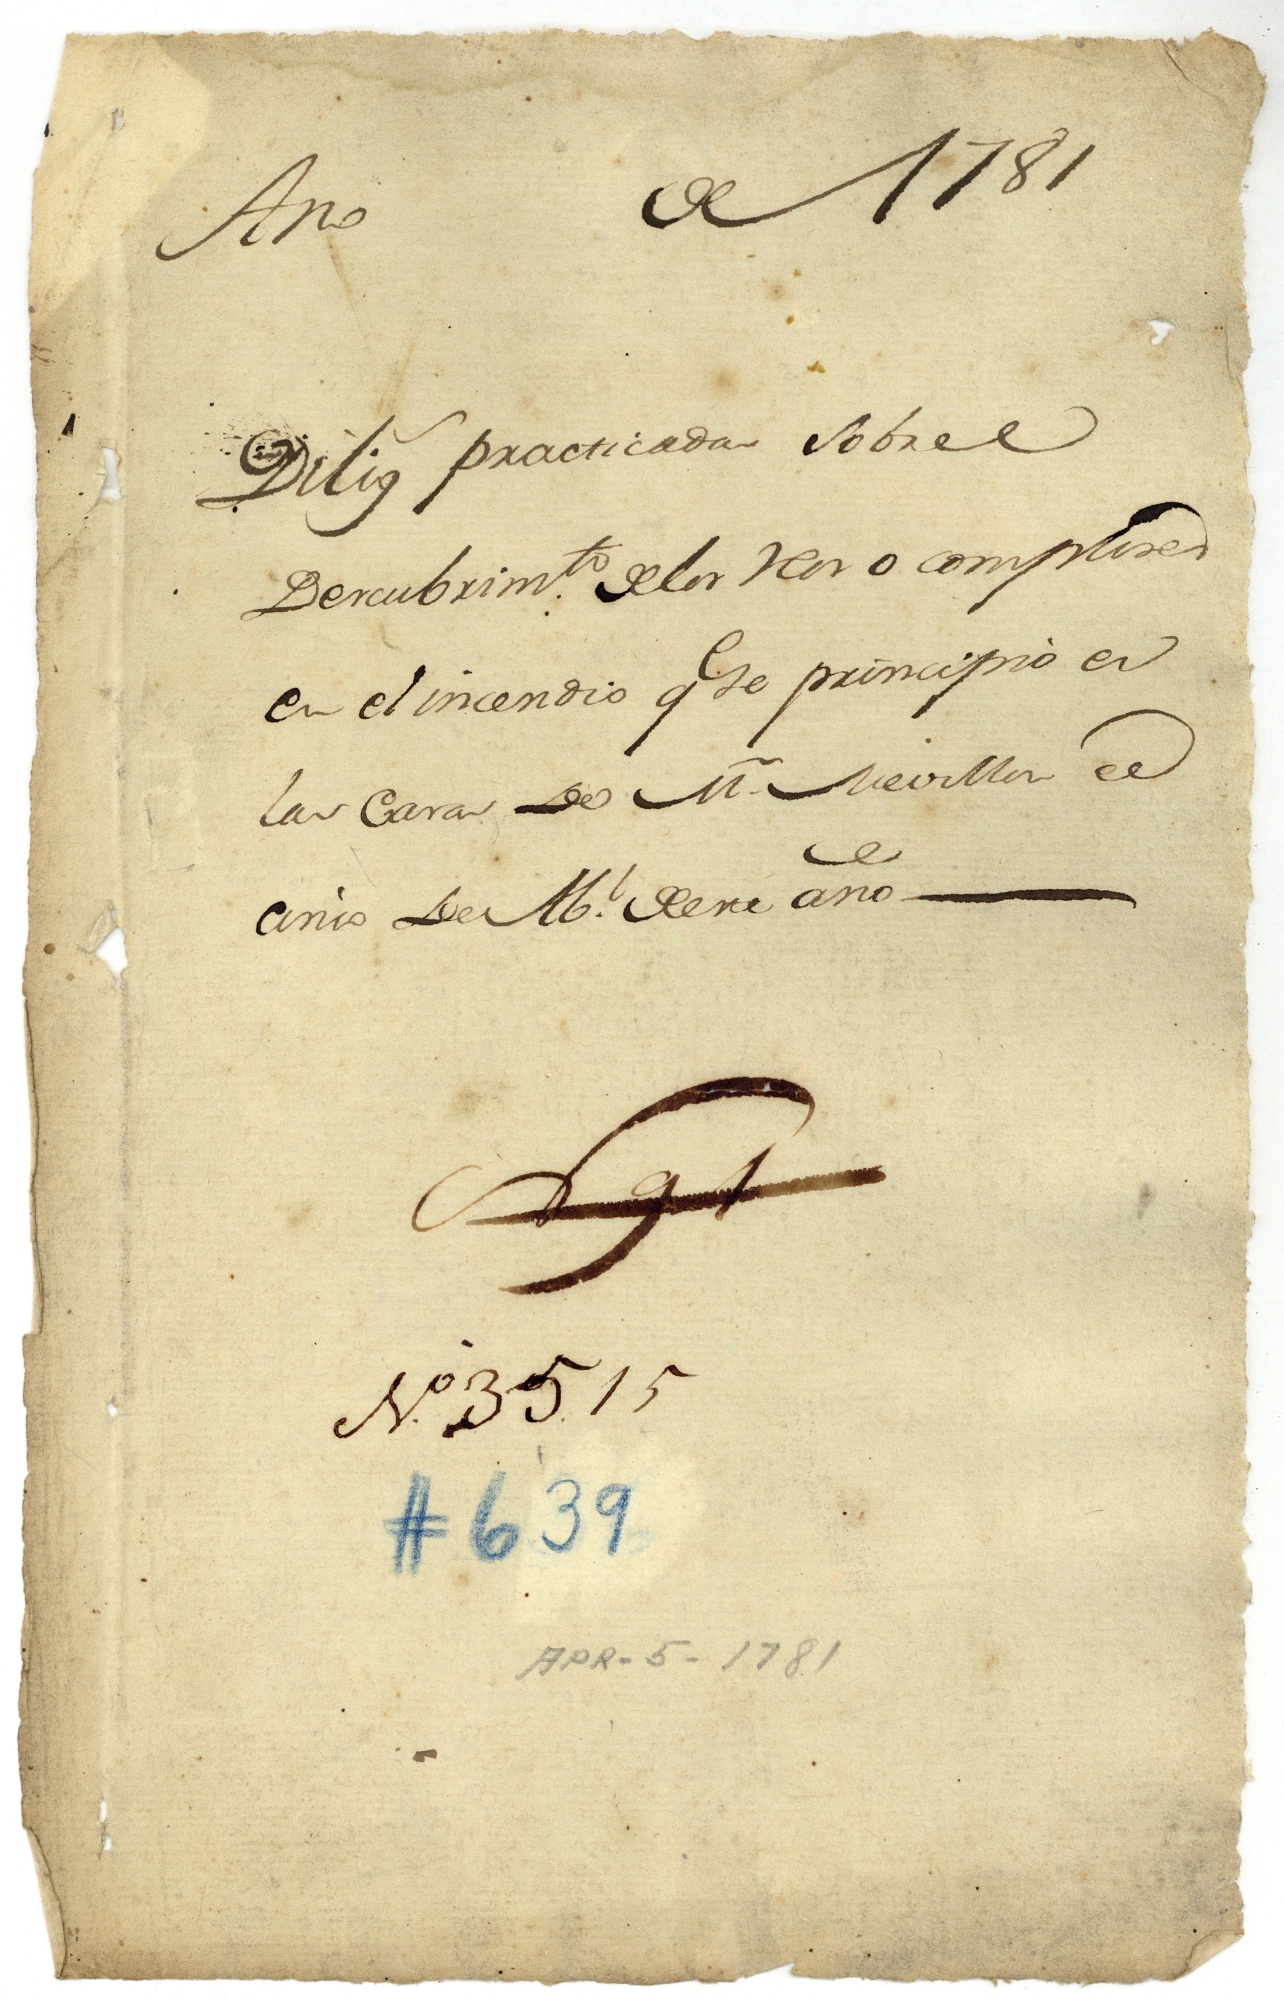 Año de 1781
Dilig.s practicadas sobre el
Descubrim.to de los Reos o complises
en el incendio q.e se principió en
las Casas de M.r el
cinco De Ab.l de este año
N.o 3515
#639
APR-5-1781